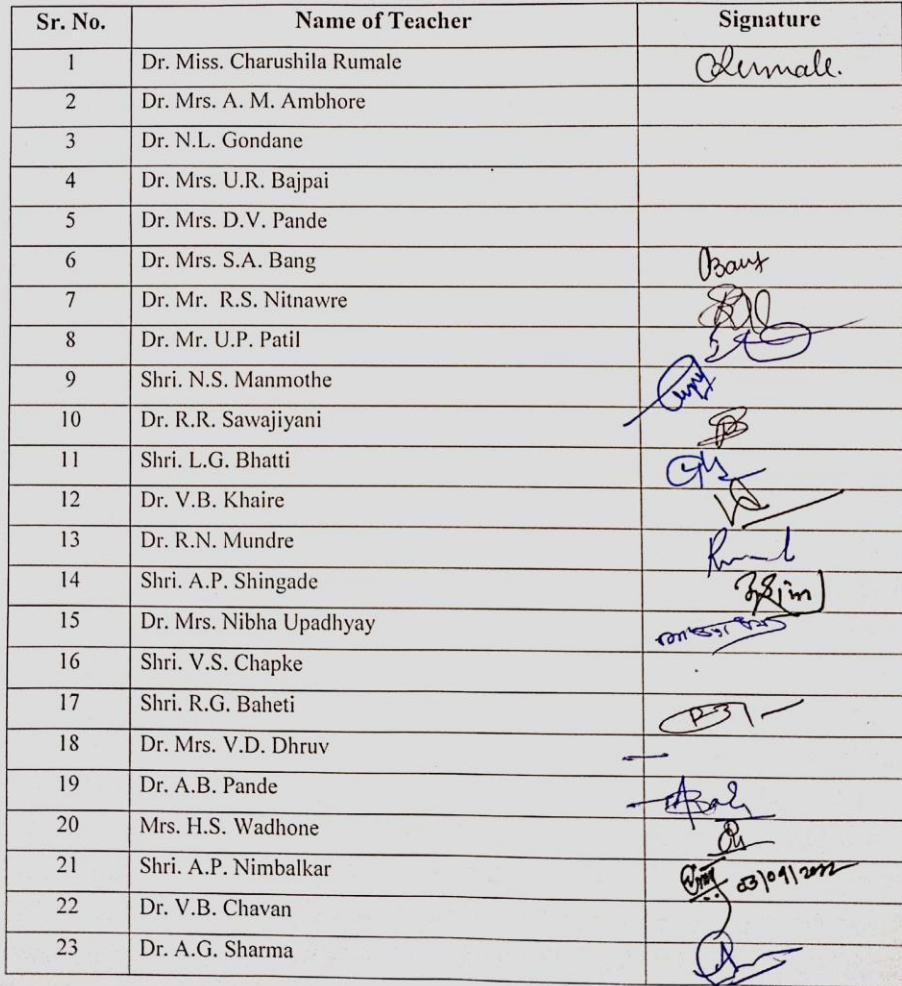 Sr. No. Name of Teacher Signature
1 Dr. Miss. Charushila Rumale Rumale.
2 Dr. Mrs. A. M. Ambhore
3 Dr. N.L. Gondane
4 Dr. Mrs. U.R. Bajpai
5 Dr. Mrs. D.V. Pande
6 Dr. Mrs. S.A. Bang Bang
7 Dr. Mr. R.S. Nitnawre
8 Dr. Mr. U.P. Patil
9 Shri. N.S. Manmothe
10 Dr. R.R. Sawajiyani
11 Shri. L.G. Bhatti
12 Dr. V.B. Khaire
13 Dr. R.N. Mundre
14 Shri. A.P. Shingade
15 Dr. Mrs. Nibha Upadhyay
16 Shri. V.S. Chapke
17 Shri. R.G. Baheti
18 Dr. Mrs. V.D. Dhruv
19 Dr. A.B. Pande
20 Mrs. H.S. Wadhone
21 Shri. A.P. Nimbalkar 03/09/2022
22 Dr. V.B. Chavan
23 Dr. A.G. Sharma